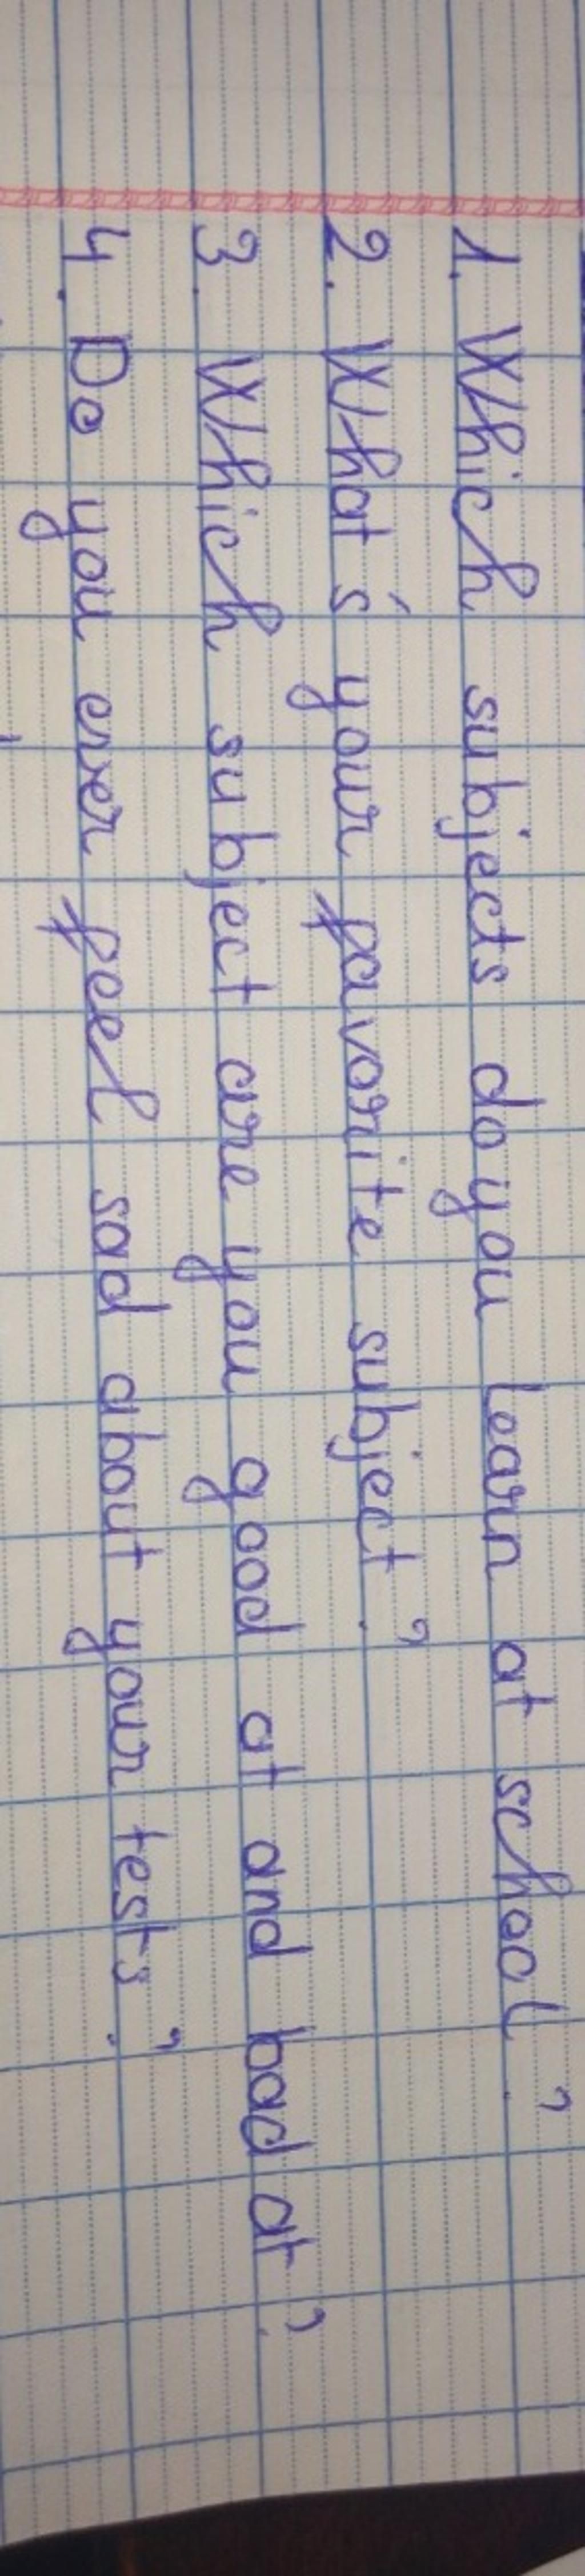 1. Which subjects do you learn at school?
2. What's your favorite subject?
3. Which subject are you good at and bad at?
4. Do you ever feel sad about your tests?